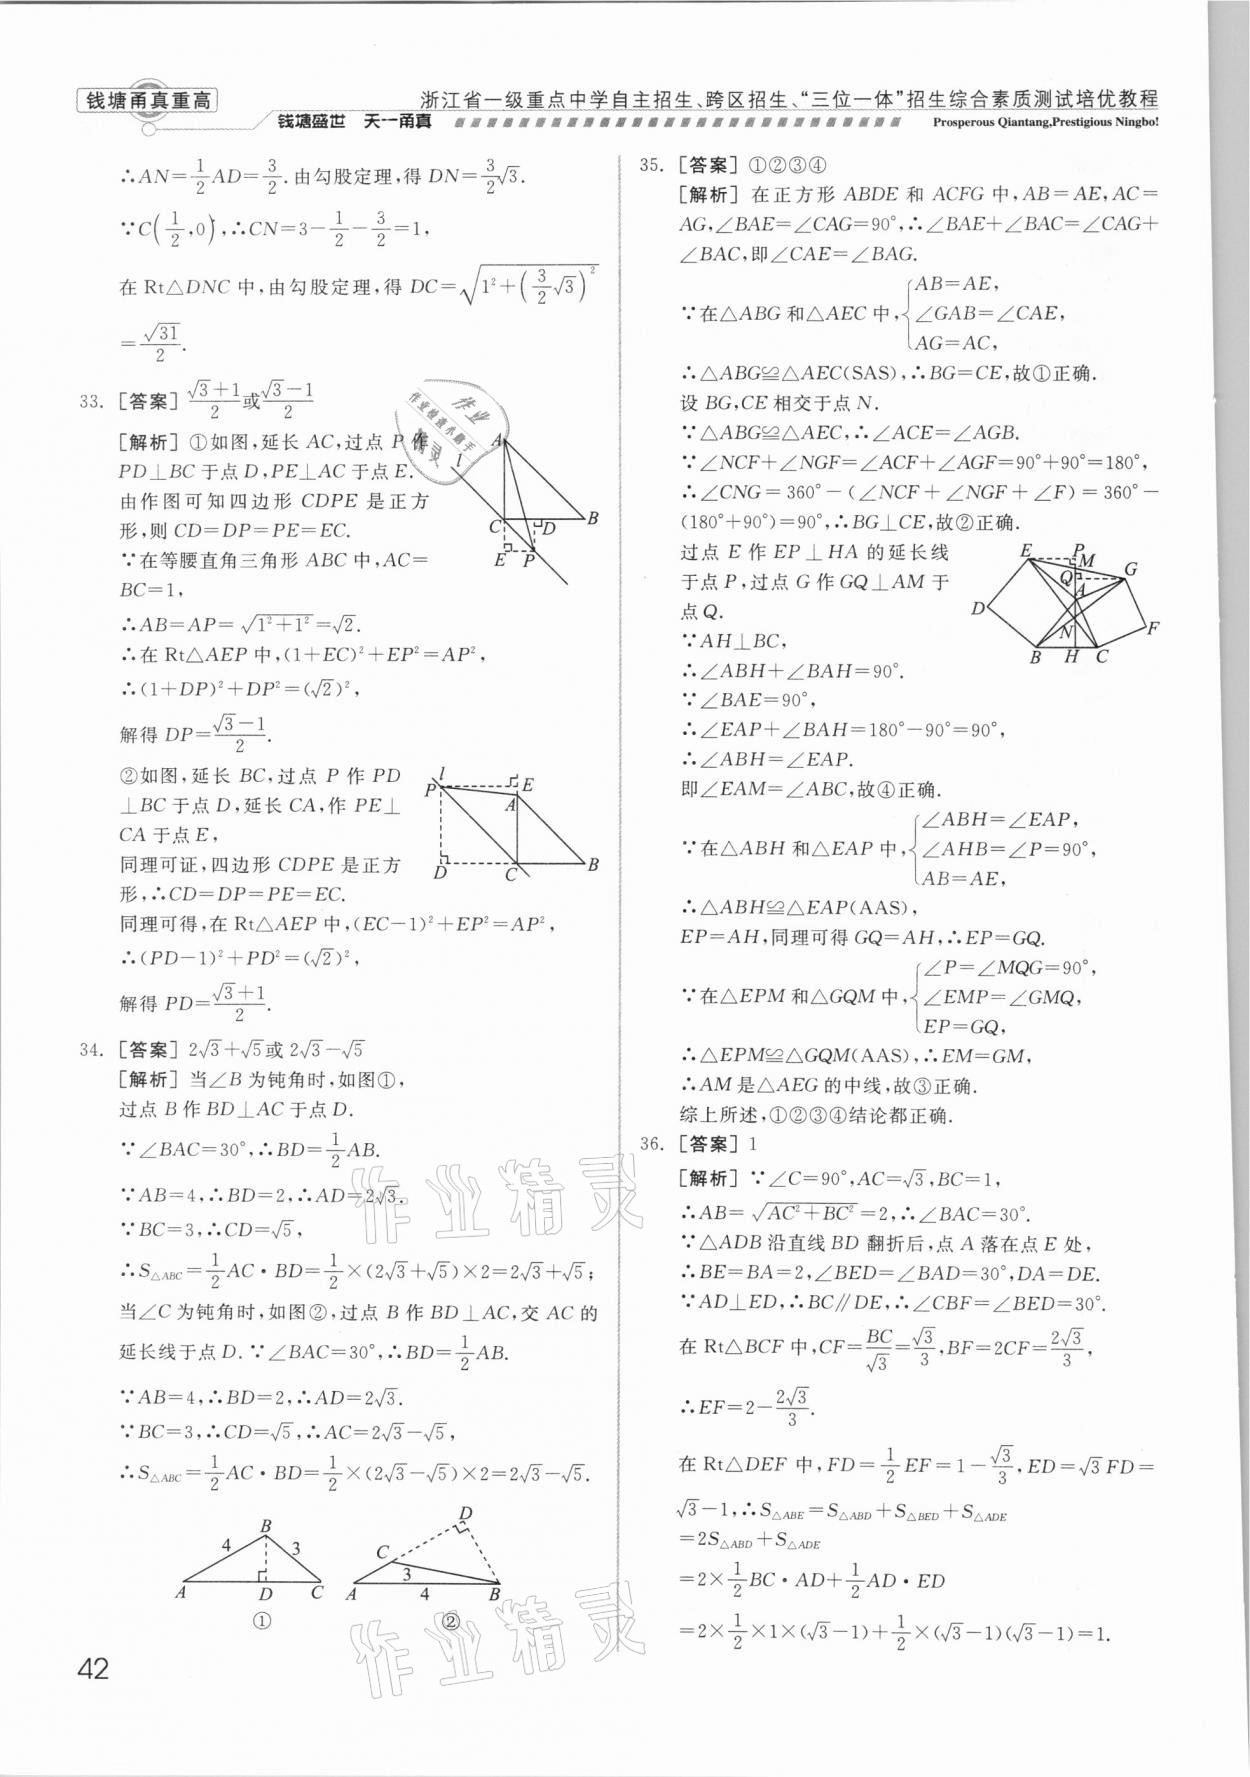 钱塘甬真重高
浙江省一级重点中学自主招生、跨区招生、“三位一体”招生综合素质测试培优教程
钱塘盛世 天一甬真
Prosperous Qiantang,Prestigious Ningbo!
∴AN=1/2AD=3/2.由勾股定理,得 DN=3/2√3.
∵C(1/2,0),∴CN=3-1/2-3/2=1,
在 Rt△DNC 中,由勾股定理,得 DC=√(1²+(3/2√3)²)
=√31/2.
33. [答案] (√3+1)/2或(√3-1)/2
[解析] ①如图,延长 AC,过点 P 作
PD⊥BC 于点 D,PE⊥AC 于点 E.
由作图可知四边形 CDPE 是正方
形,则 CD=DP=PE=EC.
∵在等腰直角三角形 ABC 中,AC=
BC=1,
∴AB=AP=√(1²+1²)=√2.
∴在 Rt△AEP 中,(1+EC)²+EP²=AP²,
∴(1+DP)²+DP²=(√2)²,
解得 DP=(√3-1)/2.
A
l
C
D
B
E
P
②如图,延长 BC,过点 P 作 PD
⊥BC 于点 D,延长 CA,作 PE⊥
CA 于点 E,
同理可证,四边形 CDPE 是正方
形,∴CD=DP=PE=EC.
同理可得,在 Rt△AEP 中,(EC-1)²+EP²=AP²,
∴(PD-1)²+PD²=(√2)²,
解得 PD=(√3+1)/2.
l
P
E
A
D
C
B
34. [答案] 2√3+√5或 2√3-√5
[解析] 当∠B 为钝角时,如图①,
过点 B 作 BD⊥AC 于点 D.
∵∠BAC=30°,∴BD=1/2AB.
∵AB=4,∴BD=2,∴AD=2√3.
∵BC=3,∴CD=√5,
∴S△ABC=1/2AC·BD=1/2×(2√3+√5)×2=2√3+√5;
当∠C 为钝角时,如图②,过点 B 作 BD⊥AC,交 AC 的
延长线于点 D.∵∠BAC=30°,∴BD=1/2AB.
∵AB=4,∴BD=2,∴AD=2√3.
∵BC=3,∴CD=√5,∴AC=2√3-√5,
∴S△ABC=1/2AC·BD=1/2×(2√3-√5)×2=2√3-√5.
B
4
3
A
D
C
①
D
C
3
A
4
B
②
42
35. [答案] ①②③④
[解析] 在正方形 ABDE 和 ACFG 中,AB=AE,AC=
AG,∠BAE=∠CAG=90°,∴∠BAE+∠BAC=∠CAG+
∠BAC,即∠CAE=∠BAG.
∵在△ABG 和△AEC 中,{AB=AE,
∠GAB=∠CAE,
AG=AC,
∴△ABG≌△AEC(SAS),∴BG=CE,故①正确.
设 BG,CE 相交于点 N.
∵△ABG≌△AEC,∴∠ACE=∠AGB.
∵∠NCF+∠NGF=∠ACF+∠AGF=90°+90°=180°,
∴∠CNG=360°-(∠NCF+∠NGF+∠F)=360°-
(180°+90°)=90°,∴BG⊥CE,故②正确.
过点 E 作 EP⊥HA 的延长线
于点 P,过点 G 作 GQ⊥AM 于
点 Q.
∵AH⊥BC,
∴∠ABH+∠BAH=90°.
∵∠BAE=90°,
∴∠EAP+∠BAH=180°-90°=90°,
∴∠ABH=∠EAP.
即∠EAM=∠ABC,故④正确.
E
P
M
G
Q
A
D
N
F
B
H
C
∵在△ABH 和△EAP 中,{∠ABH=∠EAP,
∠AHB=∠P=90°,
AB=AE,
∴△ABH≌△EAP(AAS),
EP=AH,同理可得 GQ=AH,∴EP=GQ.
∵在△EPM 和△GQM 中,{∠P=∠MQG=90°,
∠EMP=∠GMQ,
EP=GQ,
∴△EPM≌△GQM(AAS),∴EM=GM,
∴AM 是△AEG 的中线,故③正确.
综上所述,①②③④结论都正确.
36. [答案] 1
[解析] ∵∠C=90°,AC=√3,BC=1,
∴AB=√(AC²+BC²)=2,∴∠BAC=30°.
∵△ADB 沿直线 BD 翻折后,点 A 落在点 E 处,
∴BE=BA=2,∠BED=∠BAD=30°,DA=DE.
∵AD⊥ED,∴BC∥DE,∴∠CBF=∠BED=30°.
在 Rt△BCF 中,CF=BC/√3=√3/3,BF=2CF=2√3/3,
∴EF=2-2√3/3.
在 Rt△DEF 中,FD=1/2EF=1-√3/3,ED=√3FD=
√3-1,∴S△ABE=S△ABD+S△BED+S△ADE
=2S△ABD+S△ADE
=2×1/2BC·AD+1/2AD·ED
=2×1/2×1×(√3-1)+1/2×(√3-1)(√3-1)=1.
作业精灵
作业精灵
作业
作业检查小助手
精灵